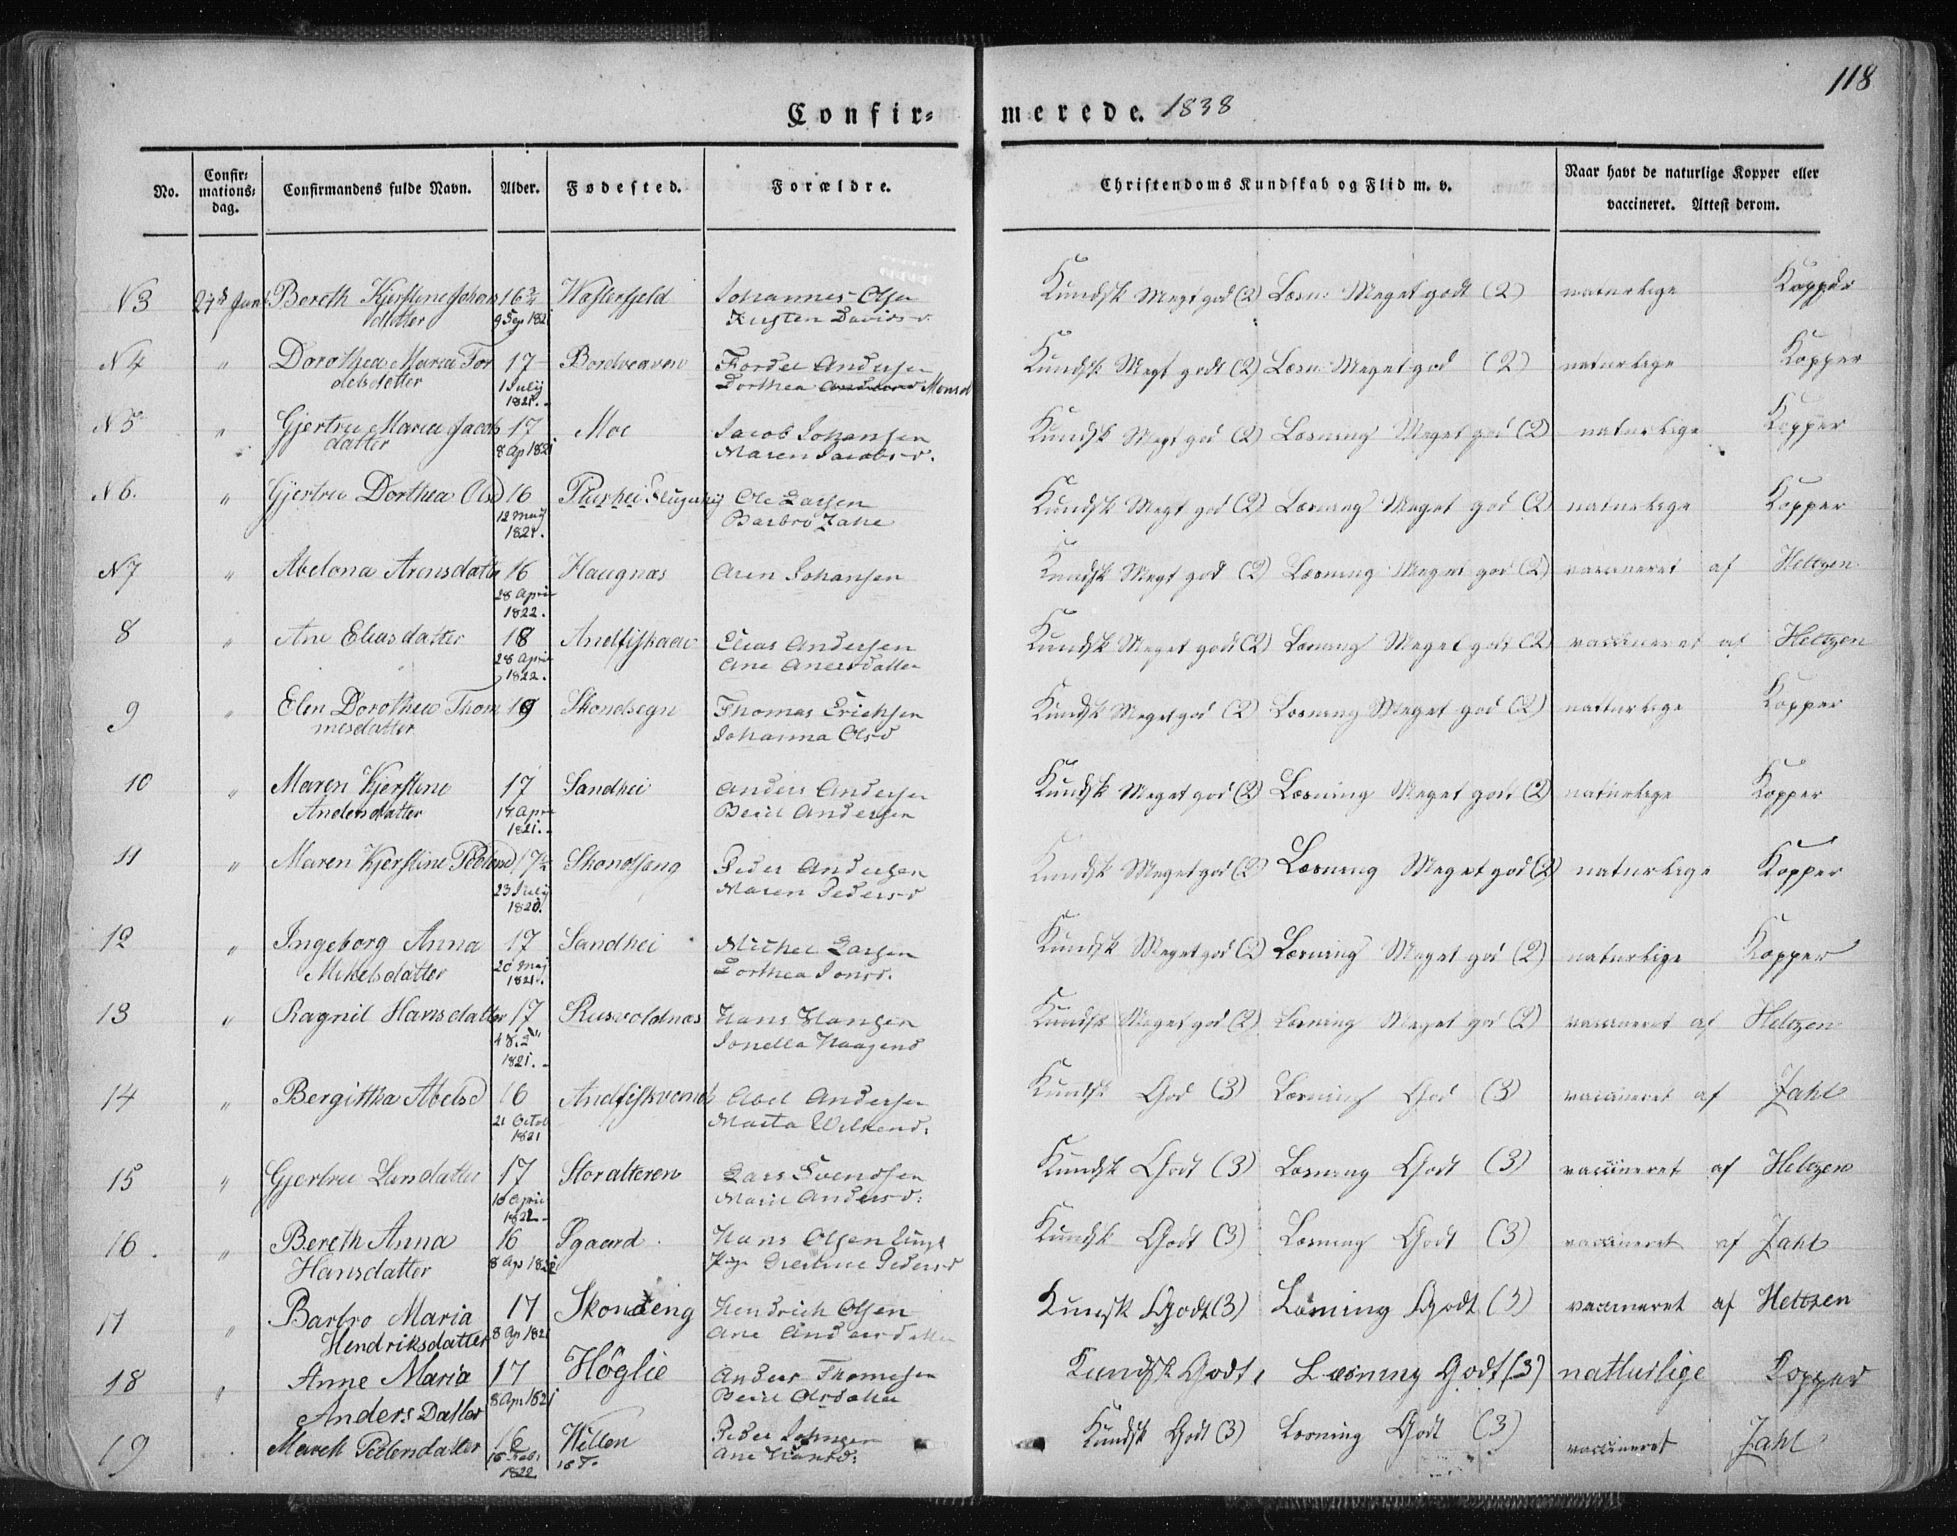 118
Confir= merede. 1838
No. Confirmations=dag. Confirmandens fulde Navn. Alder. Fødested. Forældre. Christendoms Kundskab og Flid m. v. Naar havt de naturlige Kopper eller vaccineret. Attest derom.
N3 Bereth Kjerstine Johans 16 3/4 Johannes Olsen Kundsk Megt god (2) Læsn: Meget godt (2) naturlige Kopper
datter 9 Sep 1821 Davids d.
N4 " Dorothea Maria Tor 17 Tordel Andersen Kundsk Megt godt (2) Læsn: Meget god (2) naturlige Kopper
delsdatter 1 Julij Dorthea Monsd
1821.
N5 " Gjertru Maria Jacobs 17 Moe Jacob Johansen Kundsk Megt god (2) Læsning Meget god (2) naturlige Kopper
datter 8 Ap 1821 Maren Jacobs d.
N6. " Gjertru Dorthea Olsd 16 Ole Larsen Kundsk Megt god (2) Læsning Meget god (2) naturlige Kopper
12 Maij Barbro
1821.
N7 " Abelona Arensdatter 16 Haugnæs Aren Johansen Kundsk Megt god (2) Læsning Meget god (2) vaccineret af Heltzen
28 April
1822.
8 " Ane Eliasdatter 18 Elias Andersen Kundsk Meget god (2) Læsning Meget godt (2) vaccineret af Heltzen
28 April Ane Anersdatter
1822.
9 " Elen Dorothea Thom 19 Skondsegn Thomas Erichsen Kundsk Meget god (2) Læsning Meget god (2) naturlige Kopper
mesdatter Johanna Olsd
10 " Maren Kjerstine 17 Sandhei Anders Andersen Kundsk Meget god (2) Læsning Meget godt (2) naturlige Kopper
Andersdatter 17 Apr Berit Andersen
1821.
11 " Maren Kjerstine 17 1/2 Peder Andersen Kundsk Meget god (2) Læsning Meget god (2) naturlige Kopper
23 Julij Maren Peders d
1820.
12 " Ingeborg Anna 17 Sandhei Michel Larsen Kundsk Meget god (2) Læsning Meget god (2) naturlige Kopper
Mikelsdatter 20 Maj Dorthea Jonsd.
1821.
13 " Ragnil Hansdatter 17 Rusvoldnæs Hans Hansen Kundsk Meget god (2) Læsning Meget god (2) vaccineret af Heltzen
1821. Jonella Haagend
14 " Bergittha Abelsd 16 Abel Andersen Kundsk God (3) Læsning God (3) vaccineret af Jahl
21 Octob Marta
1821
15 " Gjertru Larsdatter 17 Storalteren Lars Svendsen Kundsk Godt (3) Læsning Godt (3) vaccineret af Heltzen
10 April Marit Anders d:
1822
16. " Bereth Anna 16 Ygaard Hans Olsen Kundsk Godt (3) Læsning Godt (3) vaccineret af Jahl
Hansdatter 8 Ap 1822 Peders d
17 " Barbro Maria 17 Skonseng Hendrich Olsen Kundsk Godt (3) Læsning Godt (3) vaccineret af Heltzen
Hendriksdatter 8 Ap 1821 Ane Andersdatter
18 " Anne Maria 17 Höglie Anders Thomesen Kundsk Godt, Læsning Godt (3) natturlige Kopper
Anders Datter 8 Apr 1821 Berit Olsdatter
19 Mareth Pedersdatter 16 Peder Johnsen Kundsk Godt (3) Læsning Godt (3) vaccineret Jahl
16 Feb: Ane Hansd:
1822